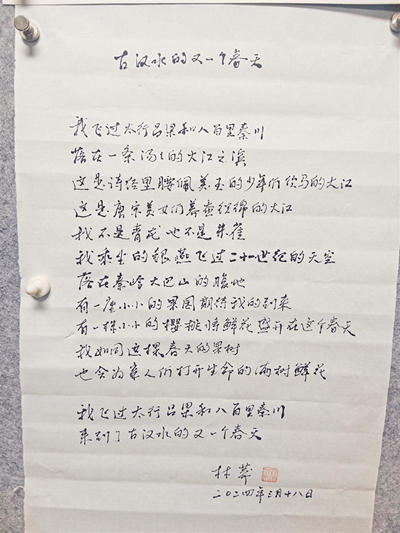 古汉水的又一个春天
我飞过太行吕梁和八百里秦川
落在一条汤汤的大江之滨
这是诗经里腰佩美玉的少年们饮马的大江
这是唐宋美女们暮壶绵的大江
我不是青龙也不是朱雀
我乘坐的银燕飞过二十一世纪的天空
落在秦岭大巴山的腹地
有一座小小的果园期待我的到来
有一株小小的樱桃将鲜花盛开在这个春天
我如同这棵春天的果树
也会为亲人们打开生命的满树鲜花
我飞过太行吕梁和八百里秦川
来到了古汉水的又一个春天
林莽
二〇二四年三月十八日